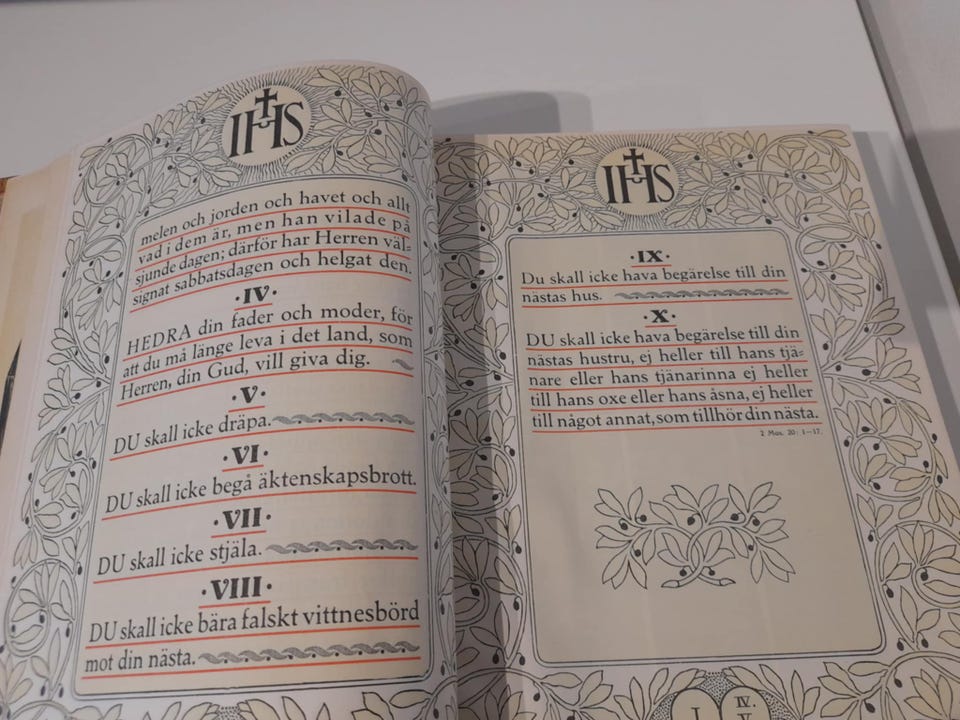 IHS
melen och jorden och havet och allt
vad i dem är, men han vilade på
sjunde dagen; därför har Herren väl=
signat sabbatsdagen och helgat den.
·IV·
HEDRA din fader och moder, för
att du må länge leva i det land, som
Herren, din Gud, vill giva dig.
·V·
DU skall icke dräpa.
·VI·
DU skall icke begå äktenskapsbrott.
·VII·
DU skall icke stjäla.
·VIII·
DU skall icke bära falskt vittnesbörd
mot din nästa.
IHS
·IX·
Du skall icke hava begärelse till din
nästas hus.
·X·
DU skall icke hava begärelse till din
nästas hustru, ej heller till hans tjä=
nare eller hans tjänarinna ej heller
till hans oxe eller hans åsna, ej heller
till något annat, som tillhör din nästa.
2 Mos. 20: 1—17.
I
IV.
V